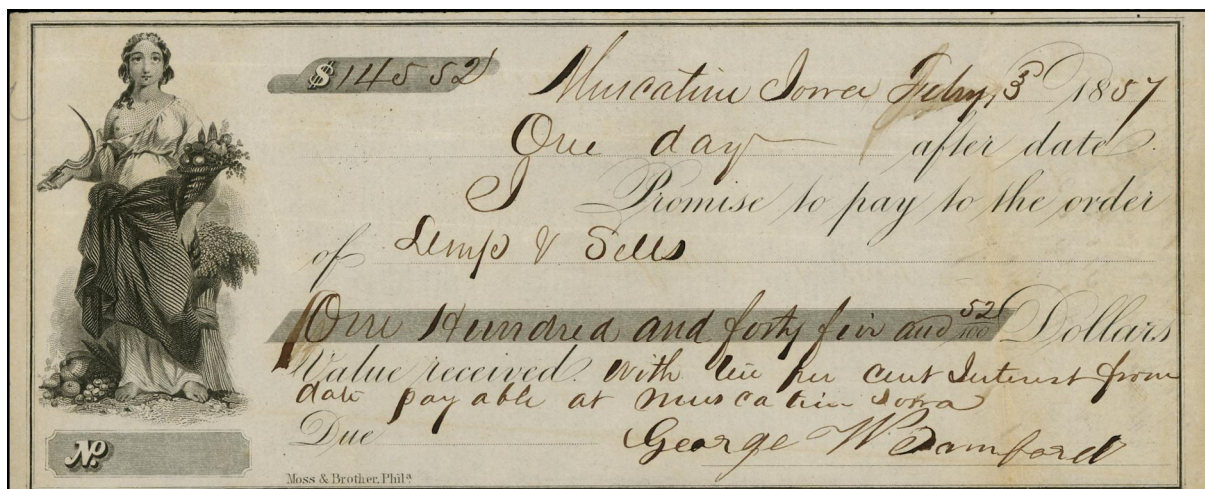 $ 145 52 Muscatine Iowa Feby, 3 1857
One day after date
I Promise to pay to the order
of Lemp & Sells
One Hundred and forty five and 52/100 Dollars
Value received. with ten per cent Interest from
date payable at Muscatine Iowa
Due George W.
No.
Moss & Brother, Phila.